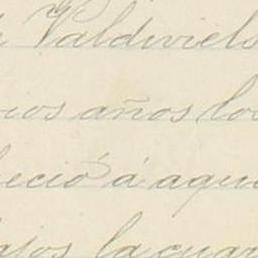 Valdiviels
ios años los
eció á aque
ajos la cuar